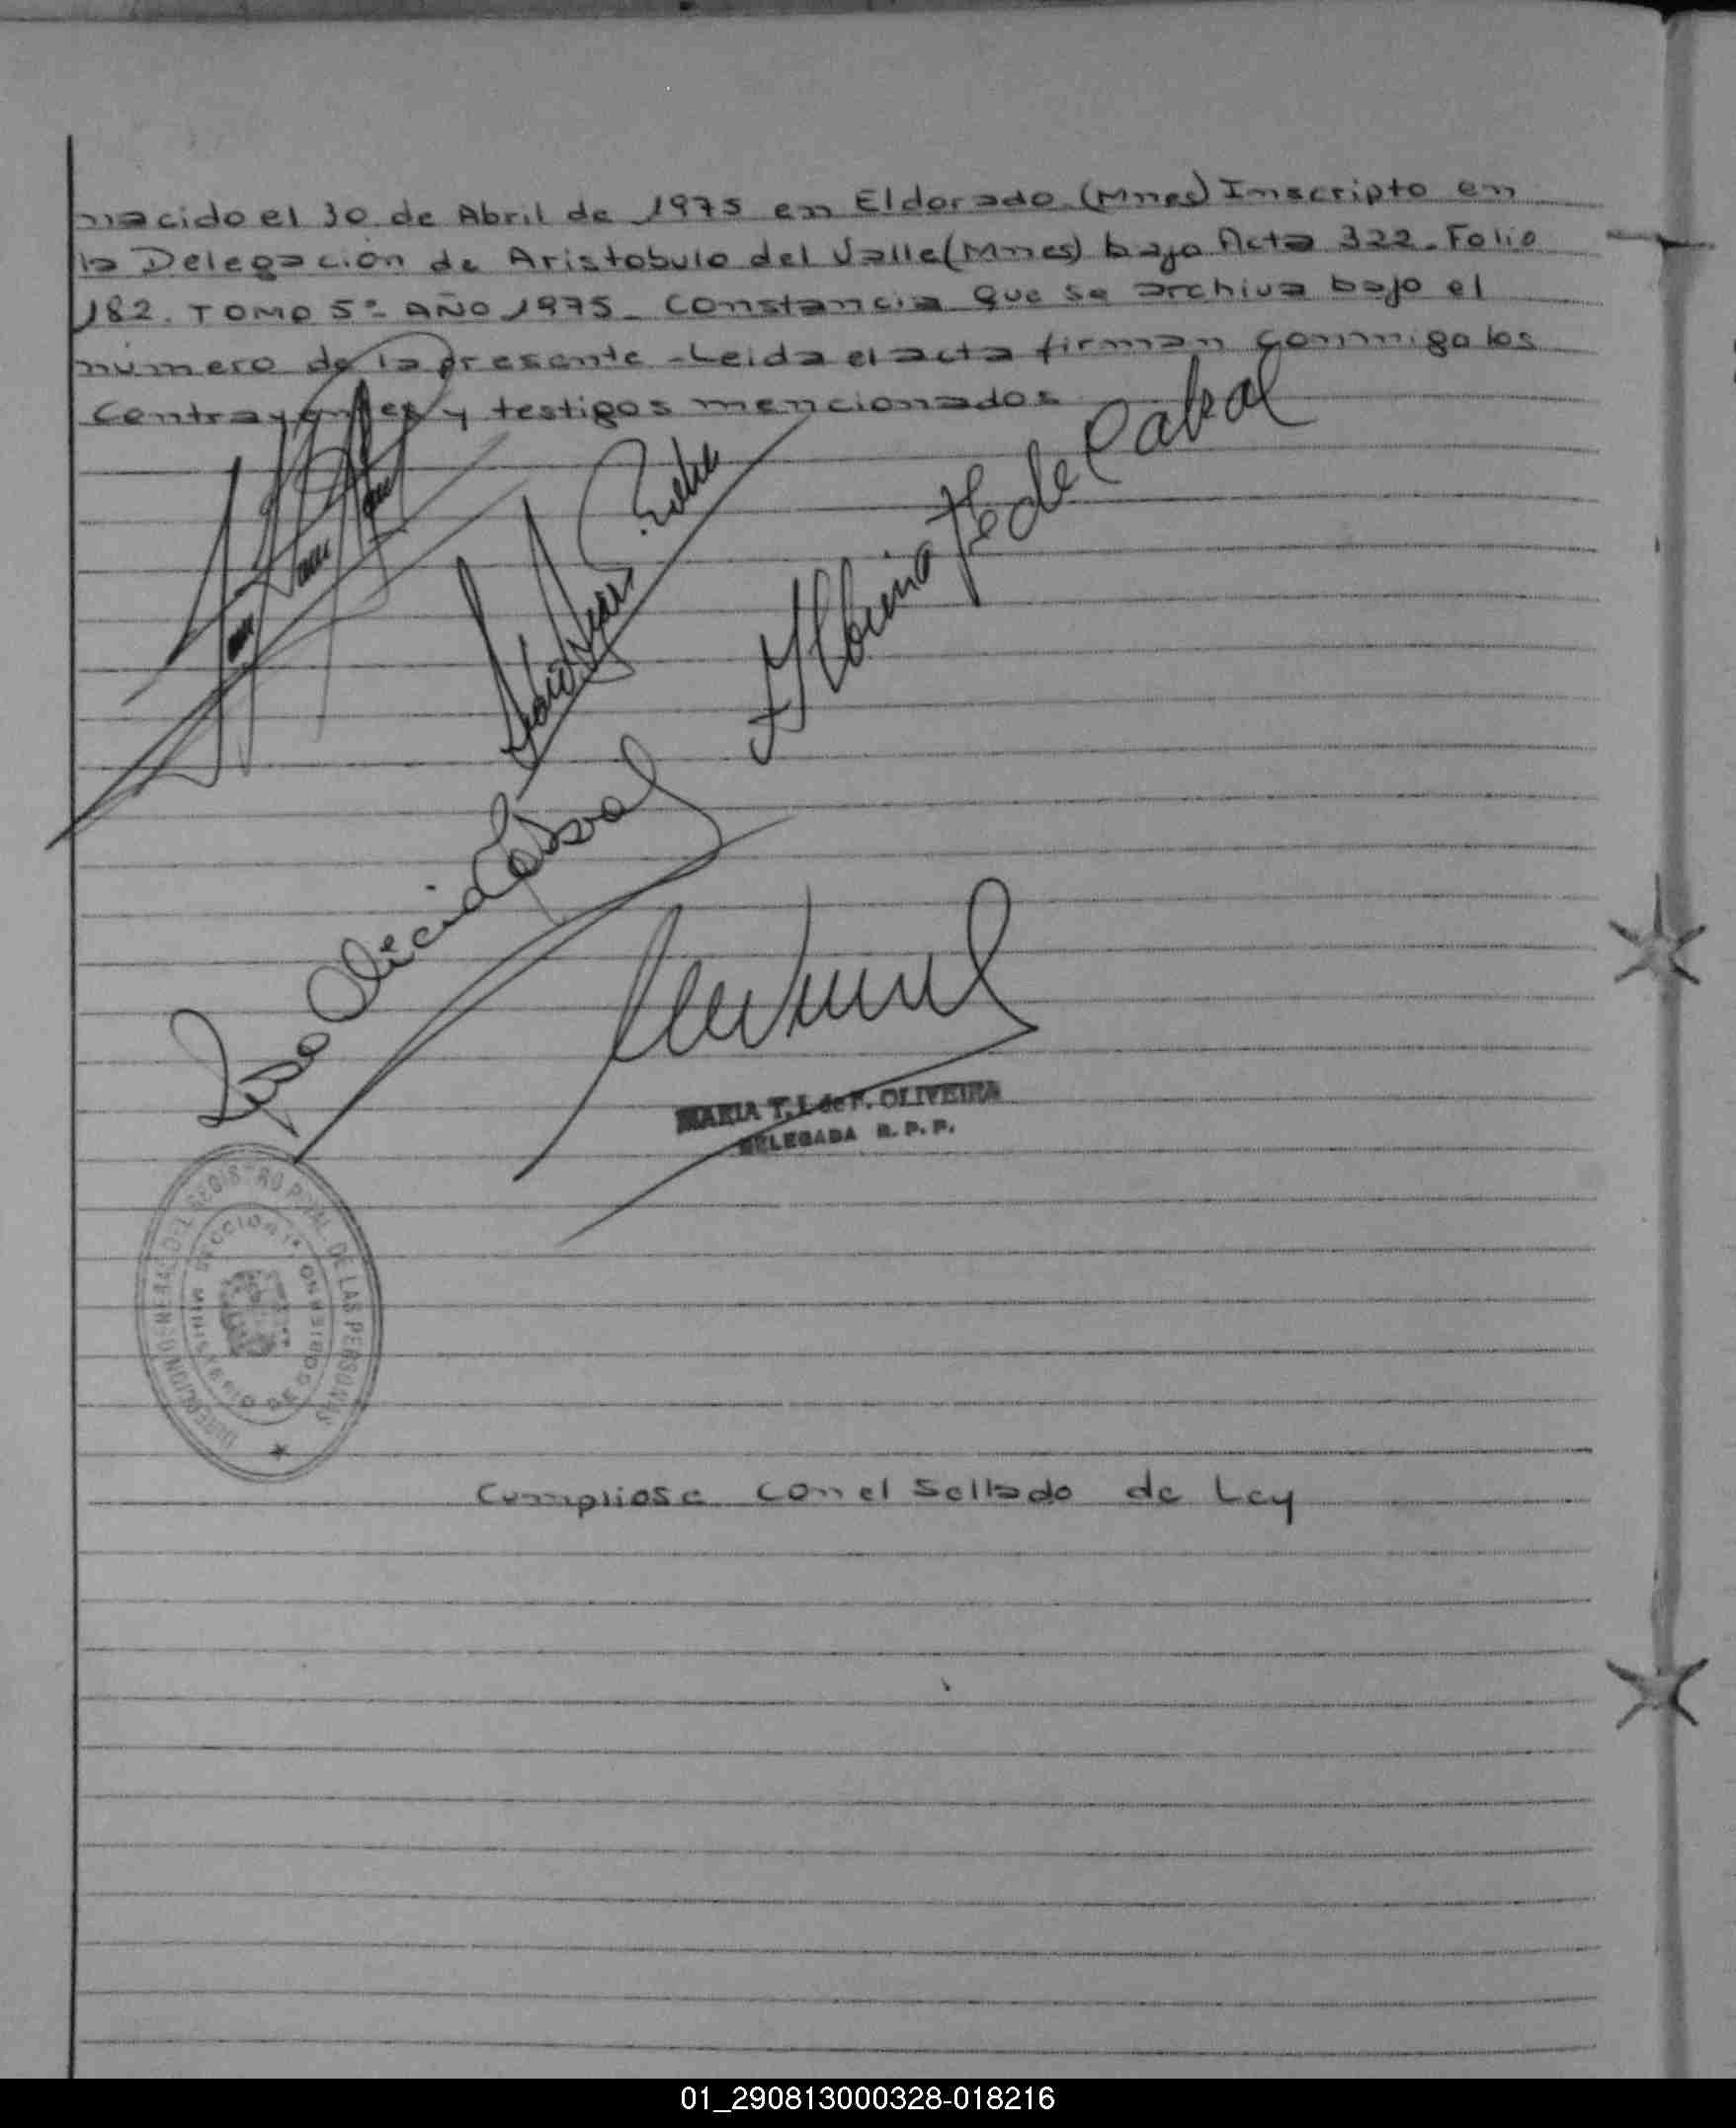 nacido el 30 de Abril de 1975 en Eldorado (Mnes) Inscripto en
la Delegación de Aristobulo del Valle (Mnes) bajo Acta 322. Folio
182. TOMO 5º AÑO 1975. Constancia que se archiva bajo el
número de la presente - Leida el acta firman conmigo los
Contrayentes y testigos mencionados
de Cabral
MARIA T. I. de F. OLIVEIRA
DELEGADA R. P. P.
DIRECCION GENERAL DEL REGISTRO PPIAL. DE LAS PERSONAS
MINISTERIO DE GOBIERNO
Cumpliose con el Sellado de Ley
01_290813000328-018216